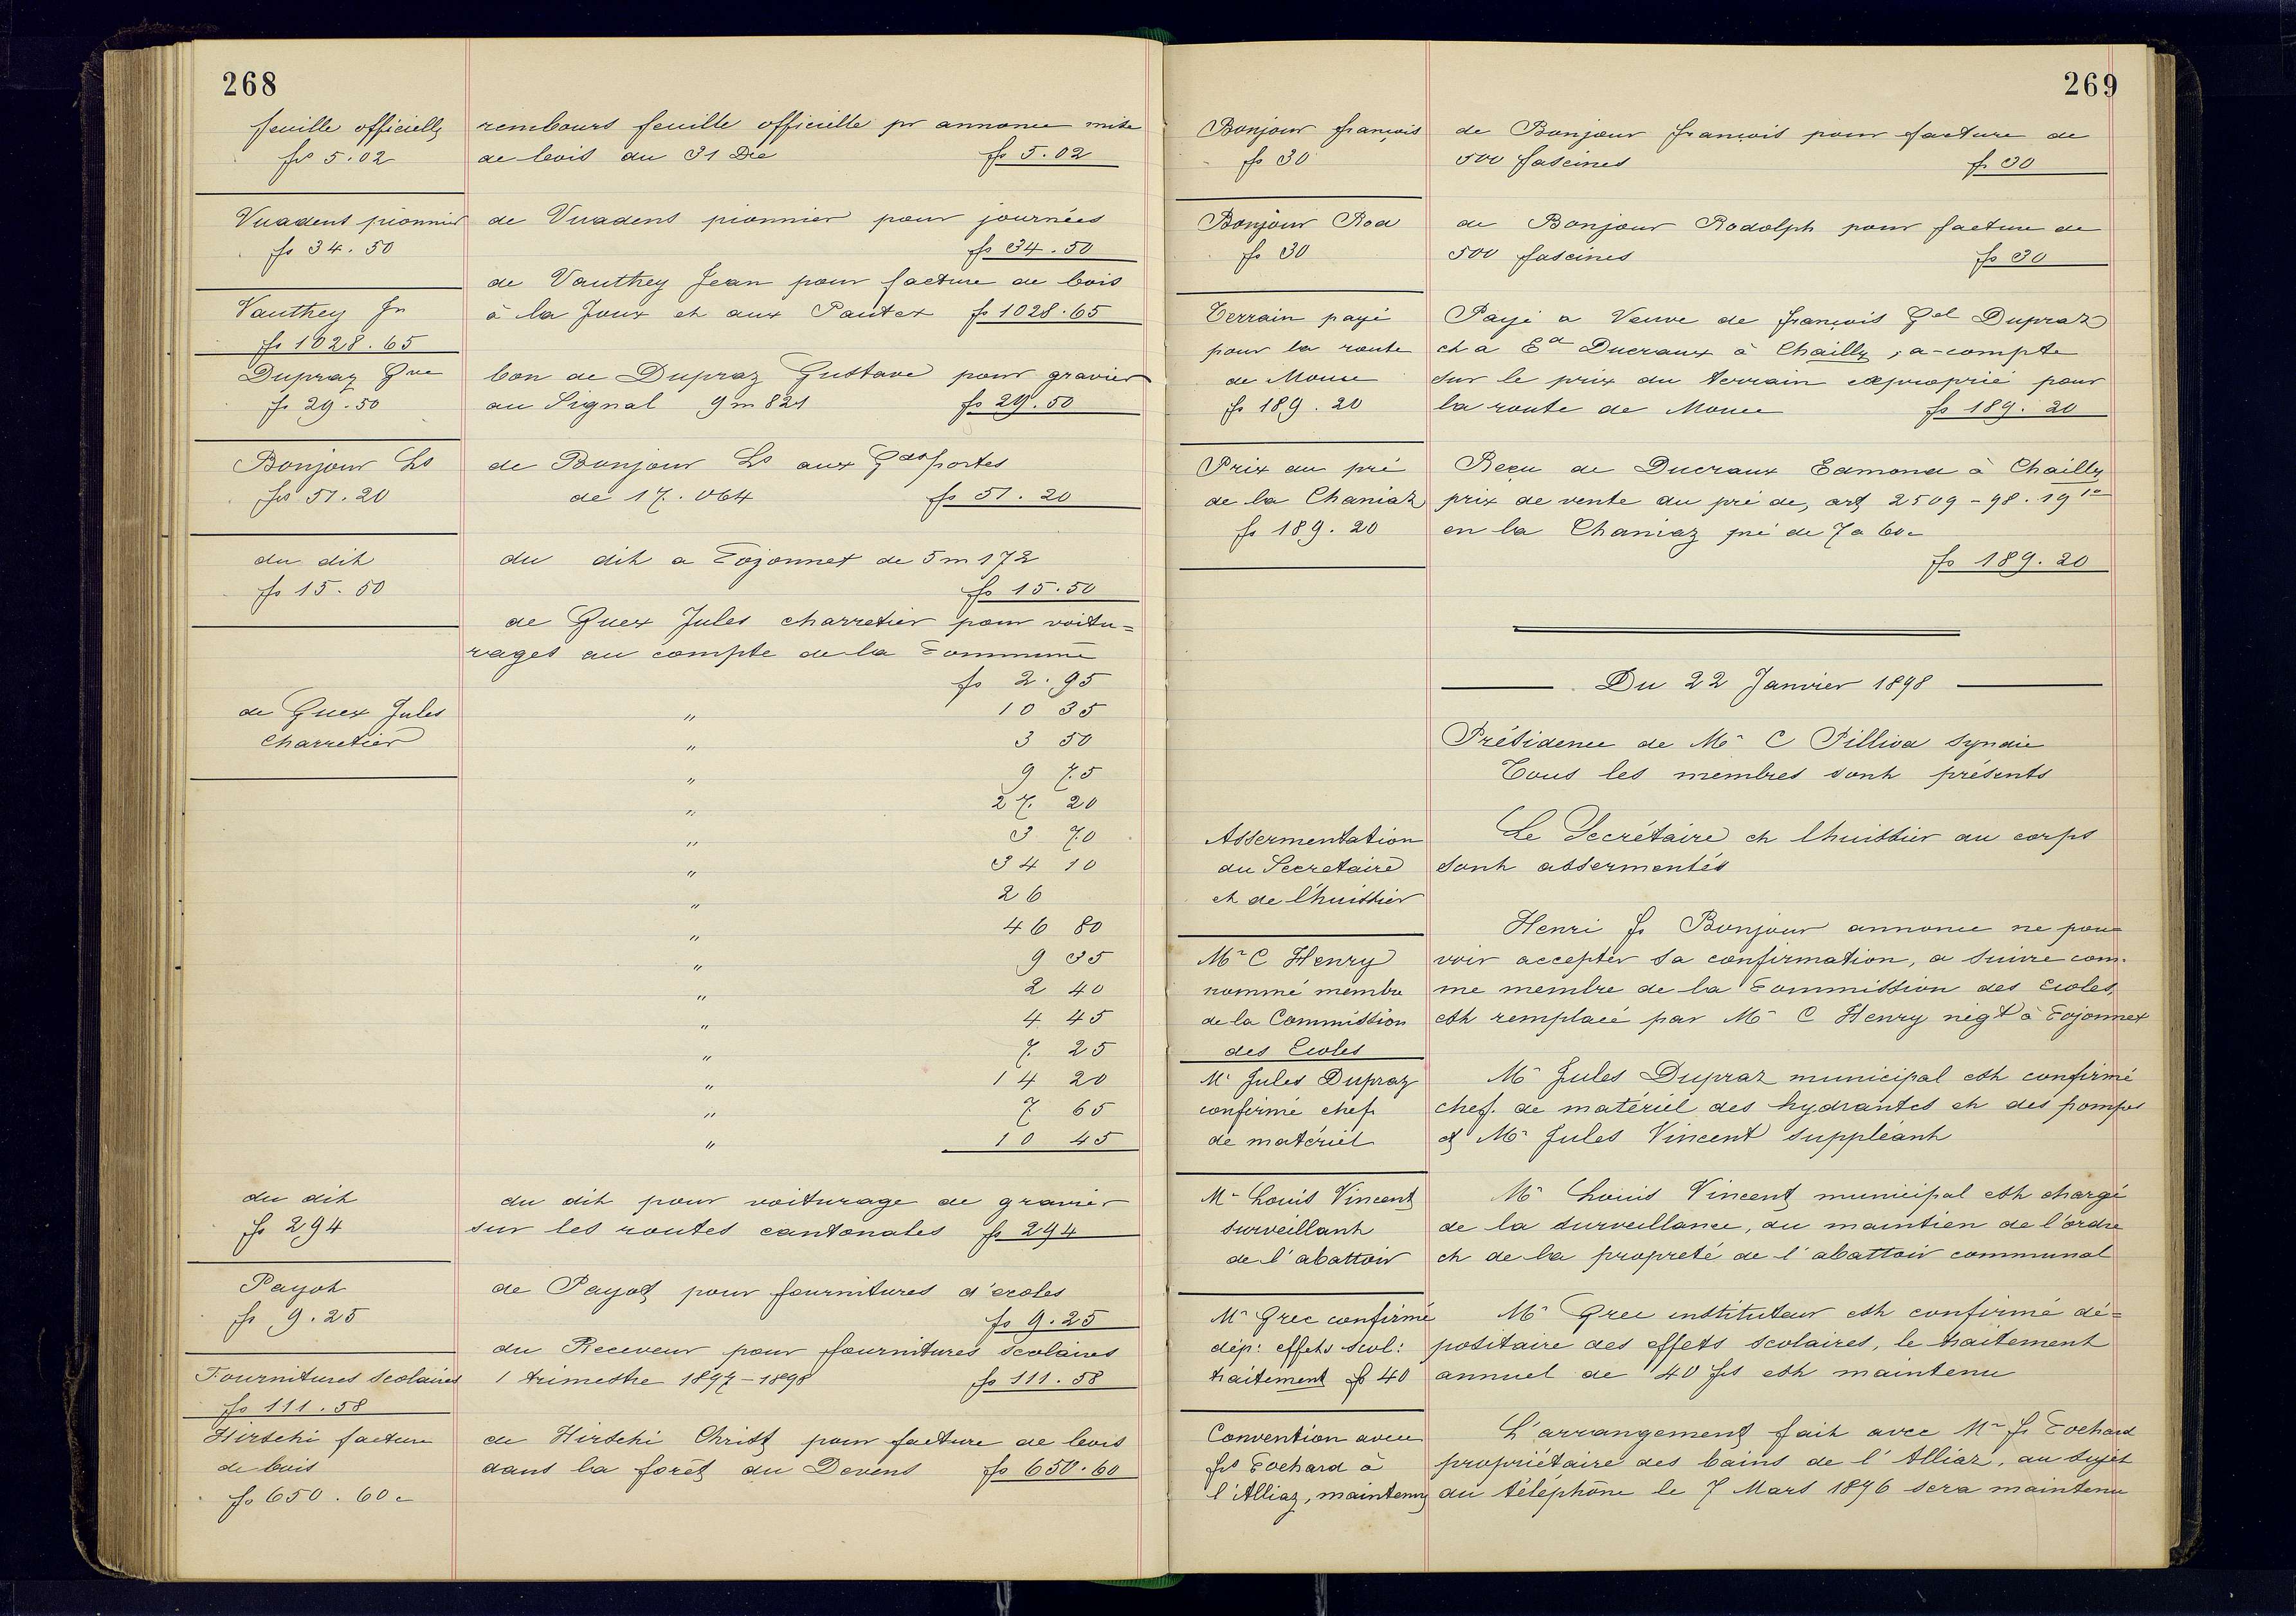 268
feuille officielle
fr 5.02
rembours feuille officielle pr annonce mise
de bois du 31 Dec fr 5.02
Vuadens pionnier
fr 34.50
de Vuadens pionnier pour journées
fr 34.50
Vauthey Jn
fr 1028.65
de Vauthey Jean pour facture de bois
à la Joux et aux Pautex fr 1028.65
Dupraz Gve
fr 29.50
bon de Dupraz Gustave pour gravier
au Signal 9m 821 fr 29.50
Bonjour Ls
frs 51.20
de Bonjour Ls aux Gdes portes
de 17.064 fr 51.20
du dit
fr 15.50
du dit a Cojonnex de 5m 172
fr 15.50
de Guex Jules
charretier
de Guex Jules charretier pour voitu=
rages au compte de la Commune
fr 2.95
" 10 35
" 3 50
" 9 75
" 27 20
" 3 70
" 34 10
" 26
" 46 80
" 9 35
" 2 40
" 4 45
" 7 25
" 14 20
" 7 65
" 10 45
du dit
fr 294
du dit pour voiturage de gravier
sur les routes cantonales fr 294
Payot
fr 9.25
de Payot pour fournitures d'écoles
fr 9.25
Fournitures scolaires
fr 111.58
du Receveur pour fournitures scolaires
1 trimestre 1897-1898 fr 111.58
Hirschi facture
de bois
fr 650.60c
de Hirschi Christ pour facture de bois
dans la forêt du Devens fr 650.60
269
Bonjour françois
fr 30
de Bonjour françois pour facture de
500 fascines fr 30
Bonjour Rod
fr 30
de Bonjour Rodolph pour facture de
500 fascines fr 30
Terrain payé
pour la route
de Mouce
fr 189.20
Payé a Veuve de françois Gel Dupraz
et a Ed Ducraux à Chailly, a-compte
sur le prix du terrain exproprié pour
la route de Mouce fr 189.20
Prix du pré
de la Chaniaz
fr 189.20
Reçu de Ducraux Edmond à Chailly
prix de vente du pré de, art 2509-98.19
en la Chaniaz pré de 7a 60c
fr 189.20
Du 22 Janvier 1898
Présidence de Mr C Pilliod syndic
Tous les membres sont présents
Assermentation
du Secretaire
et de l'huissier
Le Secrétaire et l'huissier au corps
sont assermentés
Mr C Henry
nommé membre
de la Commission
des Ecoles
Henri fs Bonjour annonce ne pou=
voir accepter sa confirmation, a suivre com-
me membre de la Commission des Ecoles,
est remplacé par Mr C Henry négt à Cojonnex
Mr Jules Dupraz
confirmé chef
de matériel
Mr Jules Dupraz municipal est confirmé
chef. de matériel des hydrantes et des pompes
et Mr Jules Vincent suppléant
Mr Louis Vincent
surveillant
de l'abattoir
Mr Louis Vincent municipal est chargé
de la surveillance, du maintien de l'ordre
et de la propreté de l'abattoir communal
Mr Grec confirmé
dép: effets scol:
traitement fr 40
Mr Grec instituteur est confirmé dé=
positaire des effets scolaires, le traitement
annuel de 40 frs est maintenu
Convention avec
frs Cochard à
l'Alliaz, maintenu
L'arrangement fait avec Mr fs Cochard
propriétaire des bains de l'Alliaz, au sujet
du téléphone le 7 Mars 1896 sera maintenu